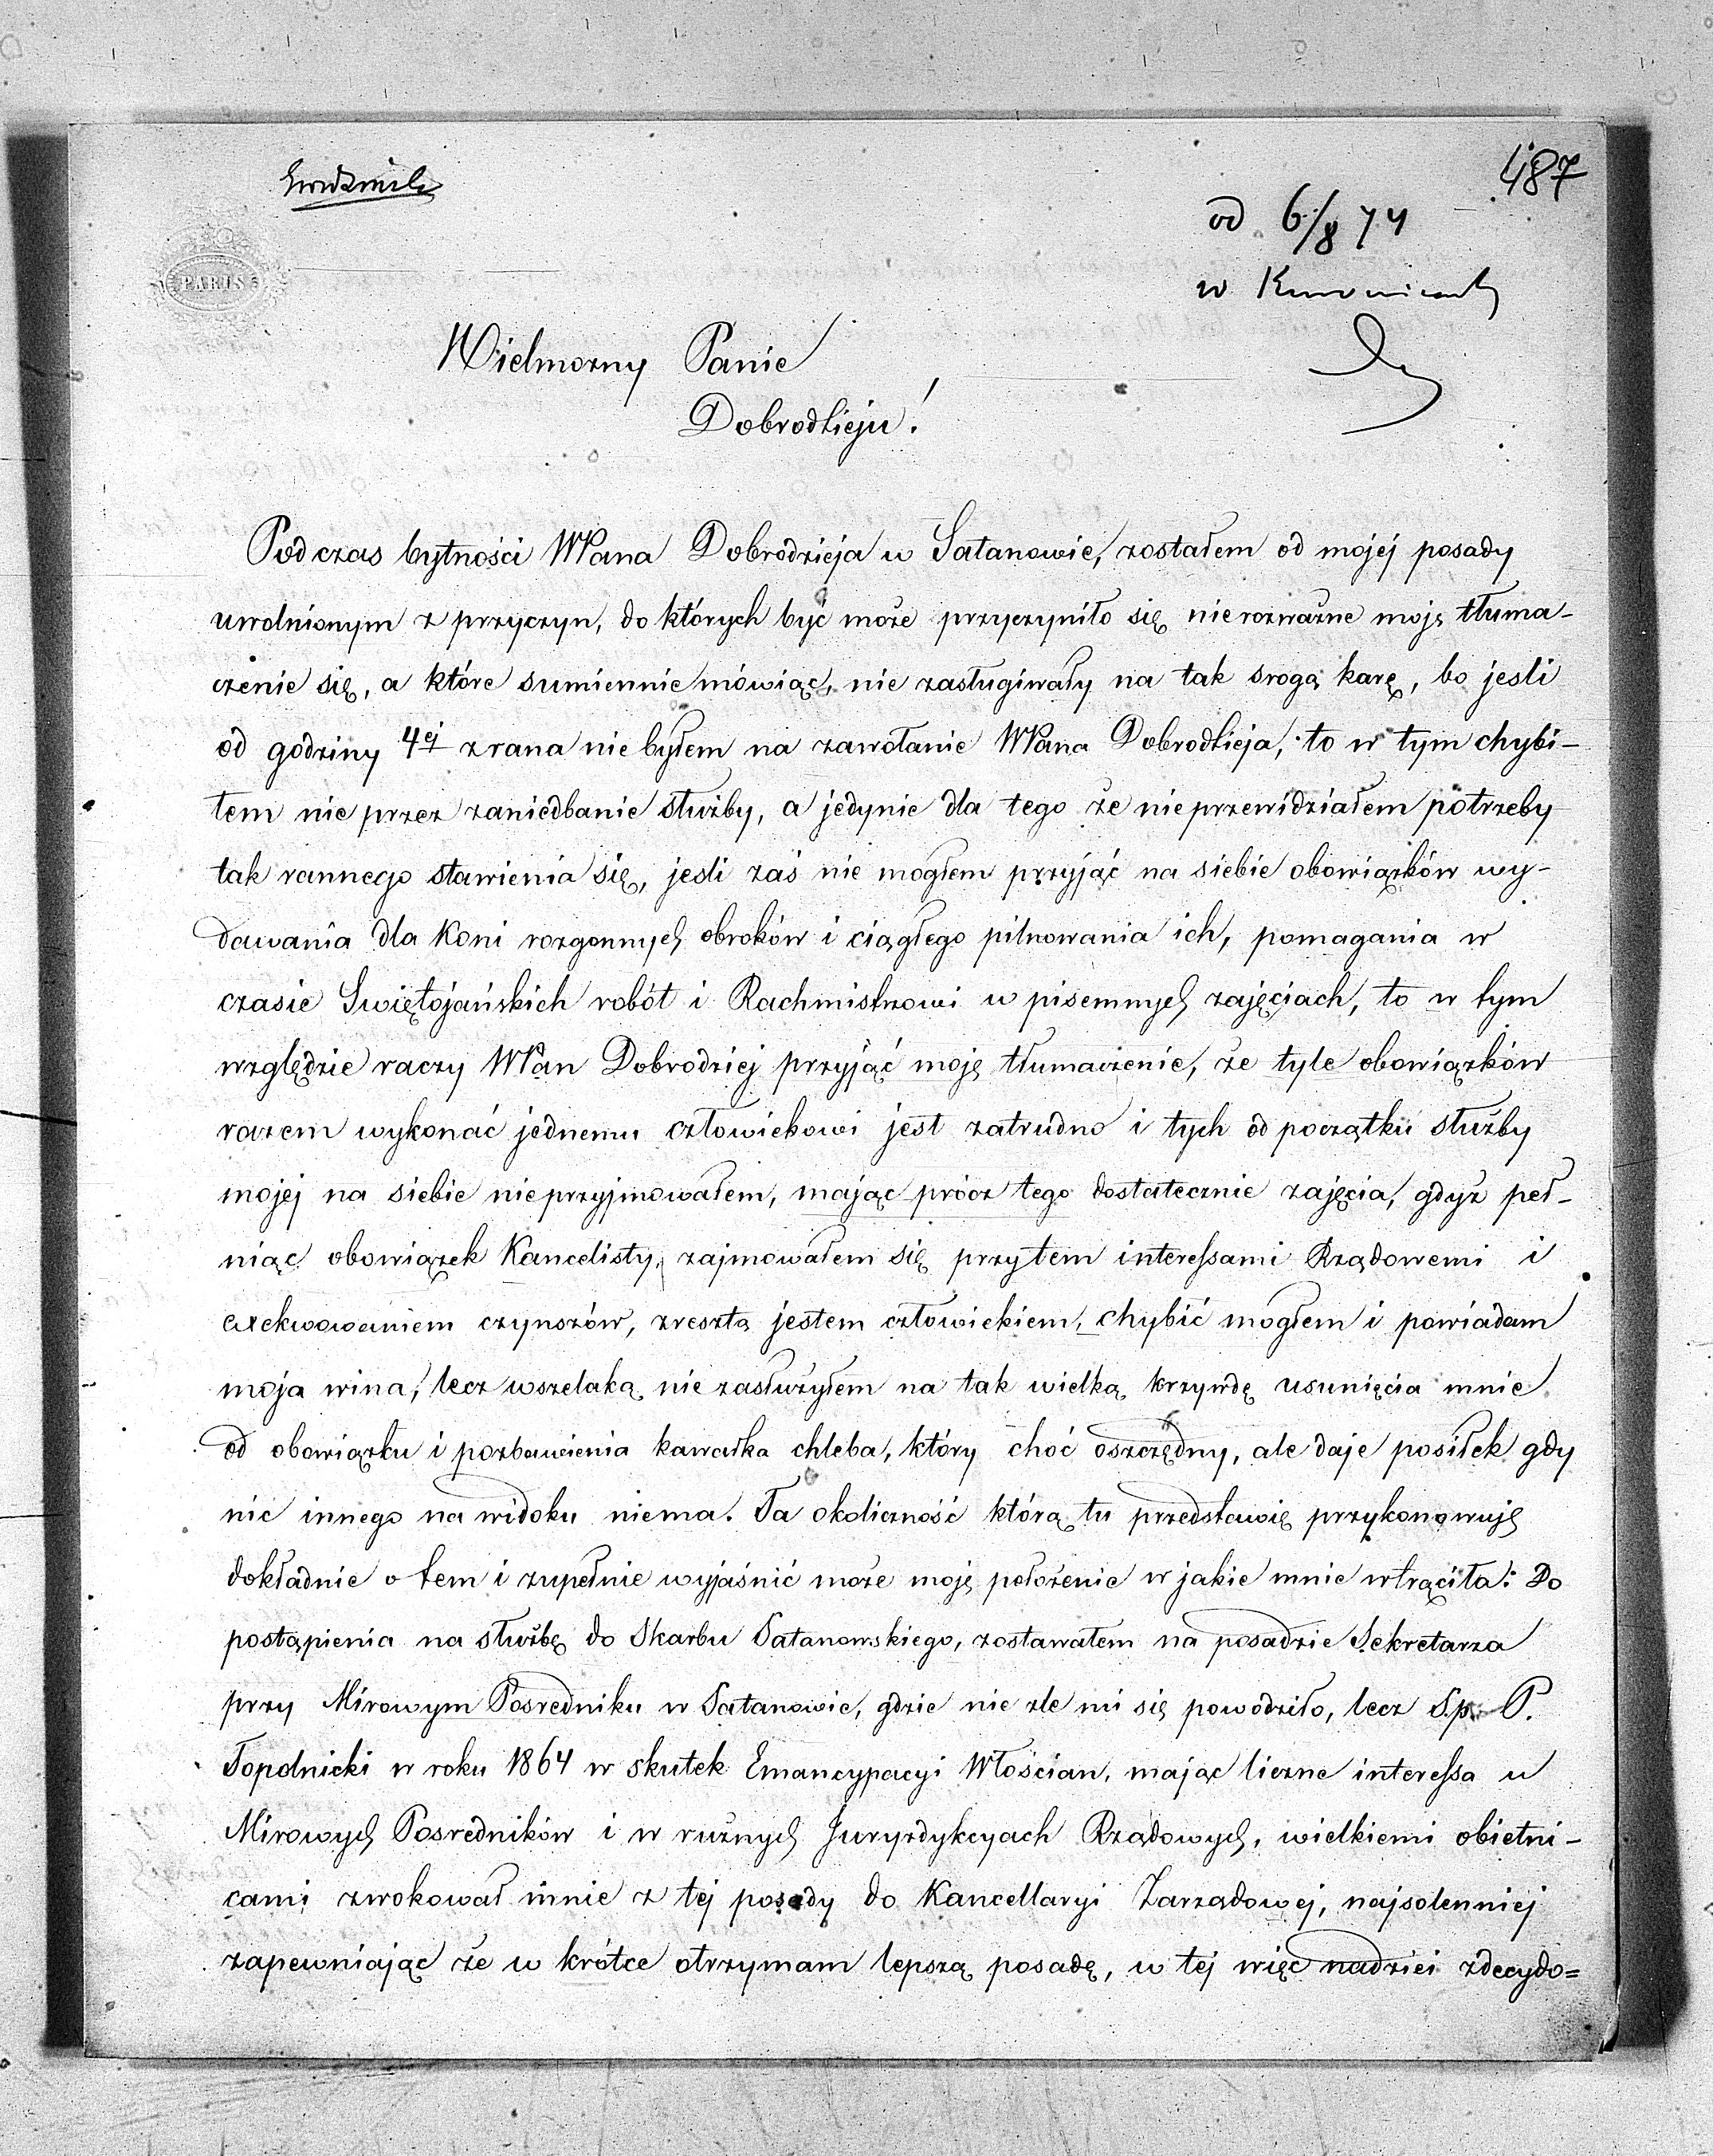 487
od 6/8 74
w
PARIS
Wielmożny Panie
Dobrodzieju!
Podczas bytności WPana Dobrodzieja w Satanowie, zostałem od mojej posady
uwolnionym z przyczyn, do których być może przyczyniło się nierozważne moje tłuma-
czenie się, a które sumiennie mówiąc, nie zasługiwały na tak srogą karę, bo jesli
od godziny 4ej zrana nie byłem na zawołanie WPana Dobrodzieja, to w tym chybi-
łem nie przez zaniedbanie służby, a jedynie dla tego że nieprzewidziałem potrzeby
tak rannego stawienia się, jesli zaś nie mogłem przyjąć na siebie obowiązków wy-
dawania dla koni rozgonnych obroków i ciągłego pilnowania ich, pomagania w
czasie Swiętojańskich robót i Rachmistrzowi w pisemnych zajęciach, to w tym
względzie raczy WPan Dobrodziej przyjąć moje tłumaczenie, że tyle obowiązków
razem wykonać jednemu człowiekowi jest zatrudno i tych od początku służby
mojej na siebie nieprzyjmowałem, mając prócz tego dostatecznie zajęcia, gdyż peł-
niąc obowiązek Kancelisty, zajmowałem się przytem interessami Rządowemi i
exekwowaniem czynszów, zresztą jestem człowiekiem, chybić mogłem i powiadam
moja wina, lecz wszelaką nie zasłużyłem na tak wielką krzywdę usunięcia mnie
od obowiązku i pozbawienia kawałka chleba, który choć oszczędny, ale daje posiłek gdy
nic innego na widoku niema. Ta okoliczność którą tu przedstawię przykonowuję
dokładnie o tem i zupełnie wyjaśnić może moje położenie w jakie mnie wtrąciła: Do
postąpienia na służbę do Skarbu Satanowskiego, zostawałem na posadzie Sekretarza
przy Mirowym Posredniku w Satanowie, gdzie nie zle mi się powodziło, lecz S.p. P.
Topolnicki w roku 1864 w skutek Emancypacyi Włościan, mając liczne interessa u
Mirowych Posredników i w rużnych Juryzdykcyach Rządowych, wielkiemi obietni-
cami zwokował mnie z tej posady do Kancellaryi Zarządowej, najsolenniej
zapewniając że w krótce otrzymam lepszą posadę, w tej więc nadziei zdecydo=